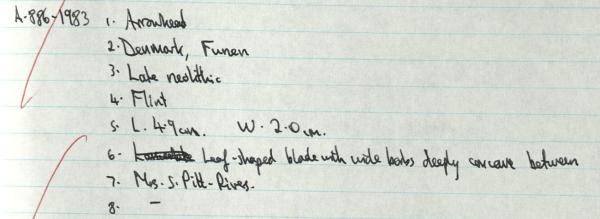 A.886-1983 1. Arrowhead
2. Denmark, Funen
3. Late neolithic
4. Flint
5. L. 4.9cm. W. 2.0cm.
6. Leaf-shaped blade with wide barbs deeply concave between
7. Mrs. S. Pitt-Rivers.
8. —